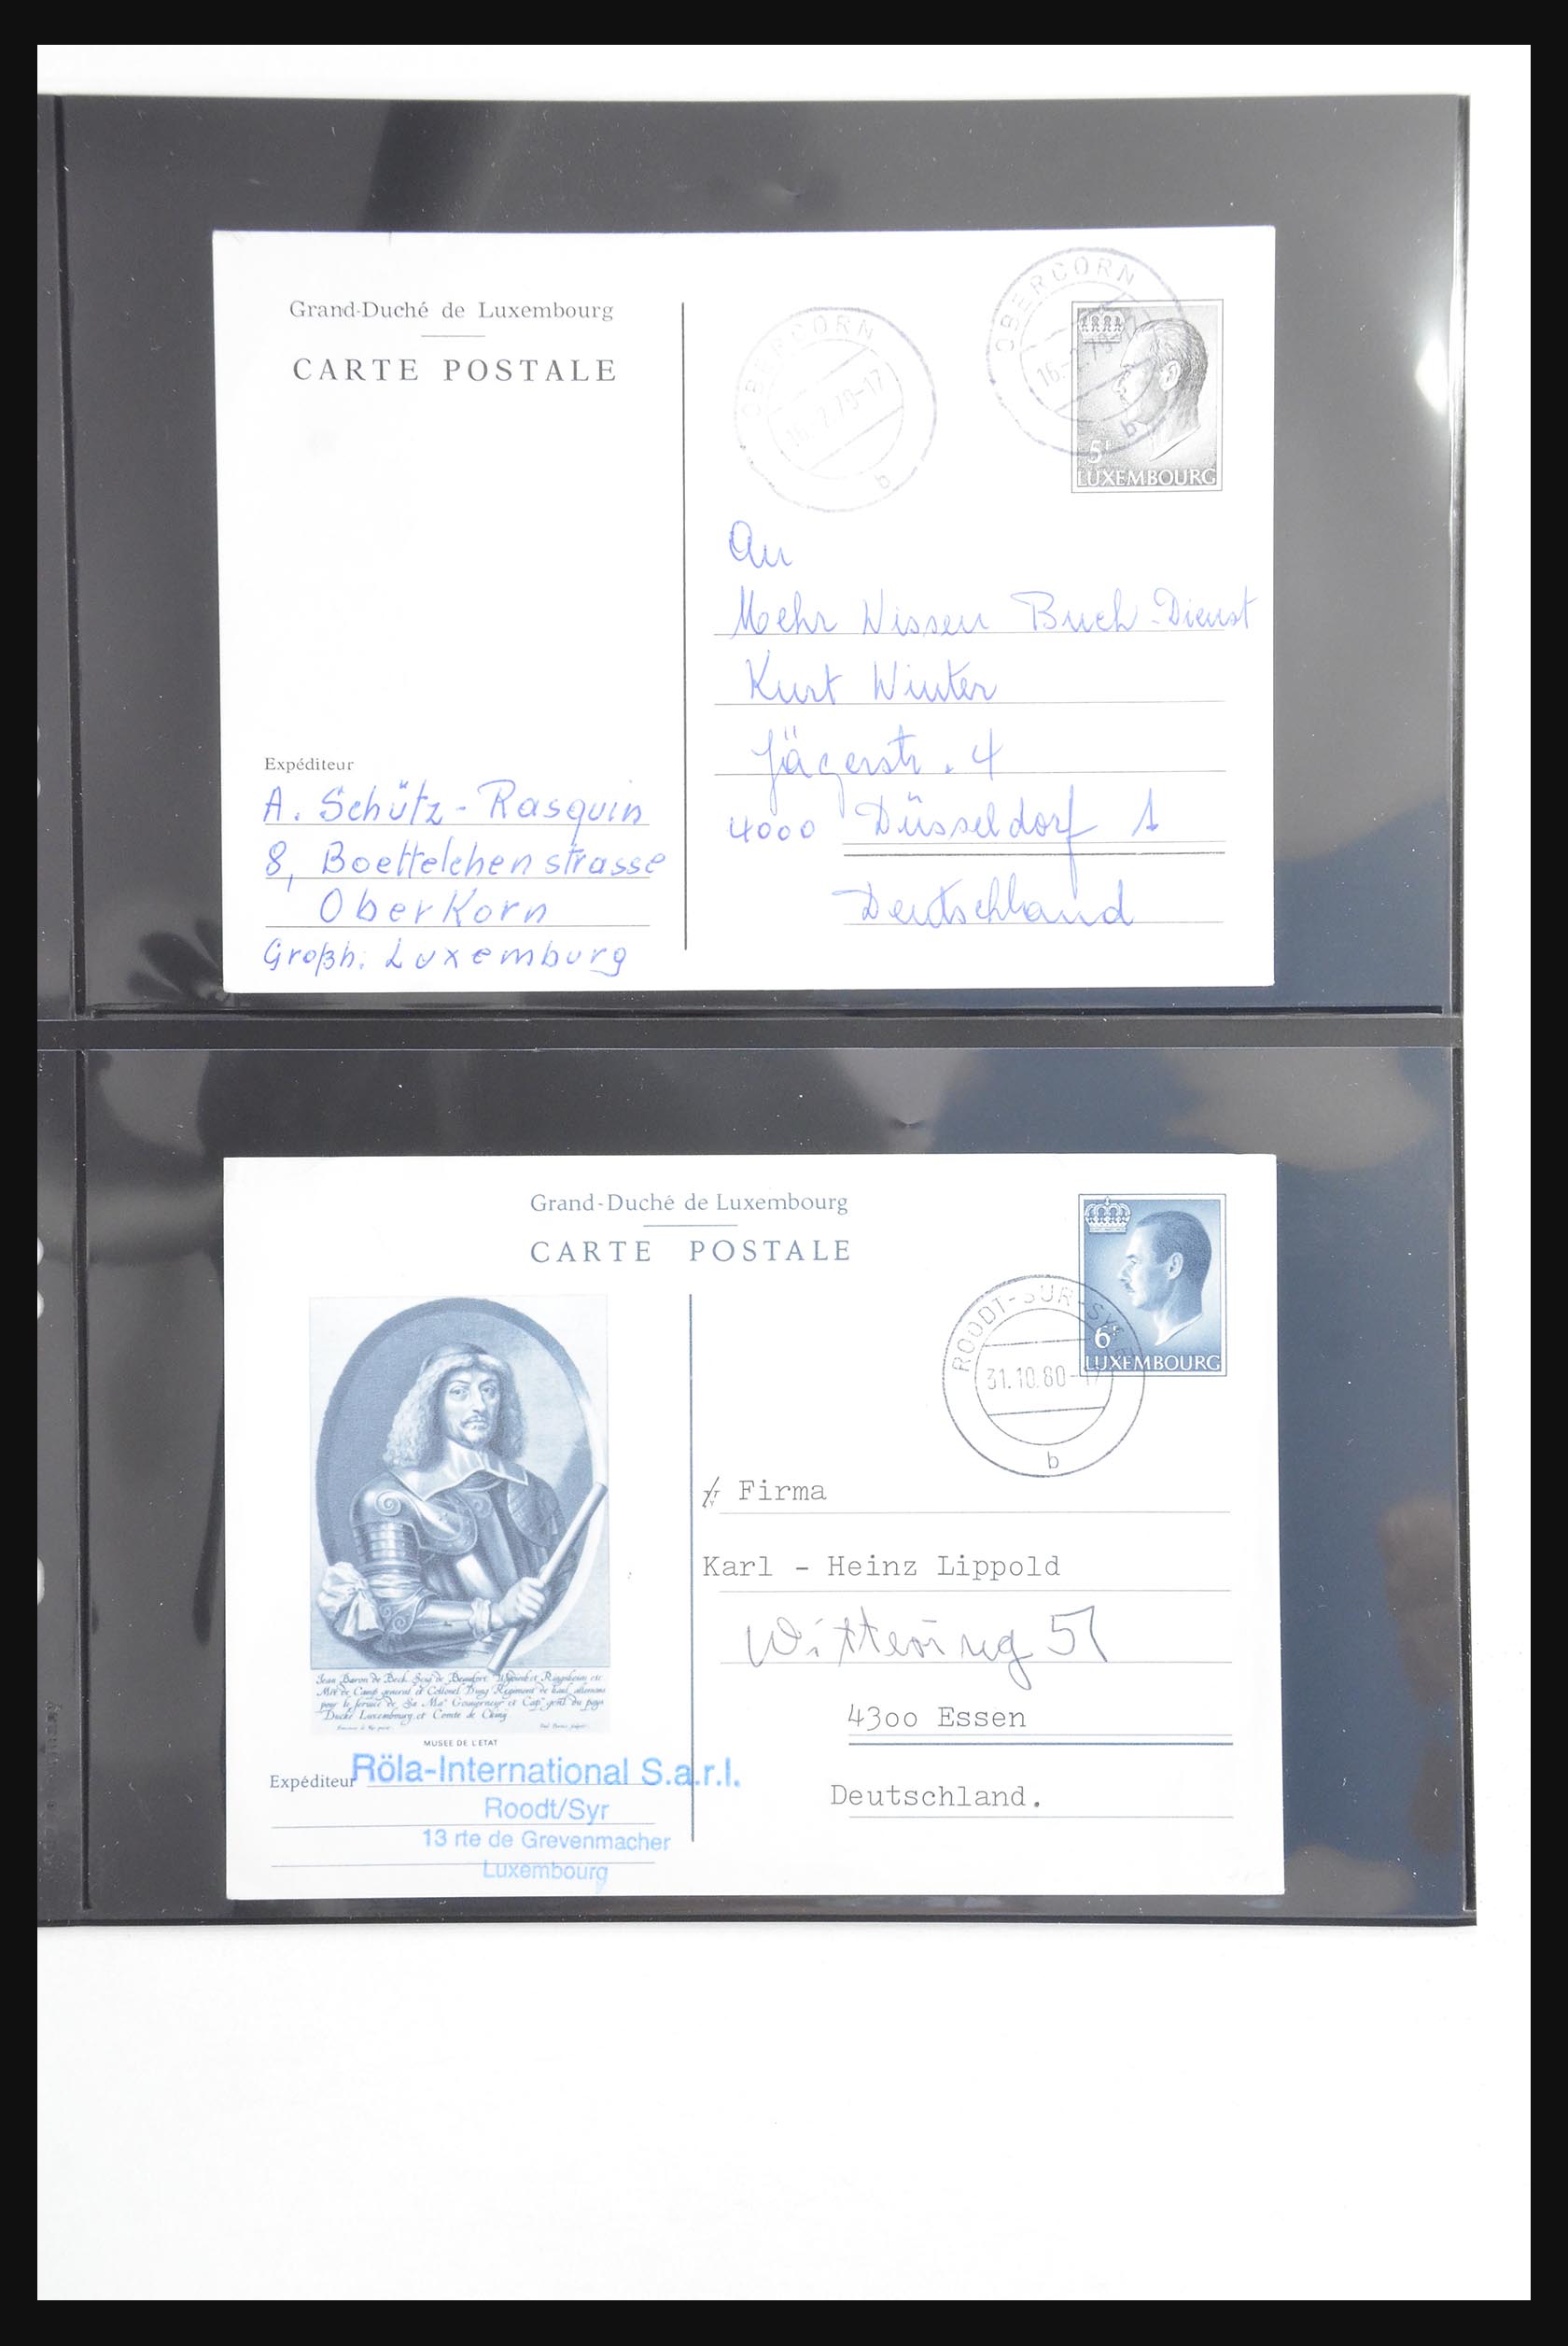 Grand-Duché de Luxembourg
CARTE POSTALE
OBERCORN
16.2.79-17
b
OBERCORN
16.
b
5F
LUXEMBOURG
An
Mehr Wissen Buch-Dienst
Kurt Winter
Jägerstr. 4
4000 Düsseldorf 1
Deutschland
Expéditeur
A. Schütz-Rasquin
8, Boettelchenstrasse
Oberkorn
Großh. Luxemburg
Grand-Duché de Luxembourg
CARTE POSTALE
6F
LUXEMBOURG
ROODT-SUR-SYRE
31.10.80-17
b
Firma
Karl - Heinz Lippold
Wittering 51
4300 Essen
Deutschland.
Jean Baron de Beck Seigr de Beaufort
Mre de Camp general et Collonel Dung Regiment de haut allemans
pour le service de Sa Mate Gouverneur et Capne genl du pays
Duché Luxembourg et Comte de Chiny
MUSEE DE L'ETAT
Expéditeur
Röla-International S.a.r.l.
Roodt/Syr
13 rte de Grevenmacher
Luxembourg